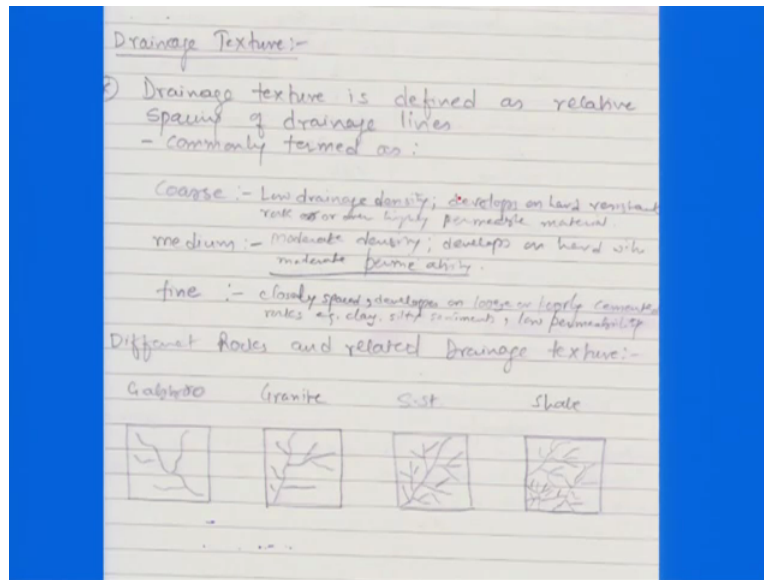 Drainage Texture:-
Drainage texture is defined as relative
Spacing of drainage lines
- Commonly termed as:
Coarse :- Low drainage density; develops on hard resistant
rock or over highly permeable material
medium :- moderate density; develops on hard
moderate permeability.
fine :- closely spaced, develops on loose or cemented
rocks e.g. clay, silty sediments, low permeability
Different Rocks and related Drainage texture:-
Gabbro Granite S.St. Shale